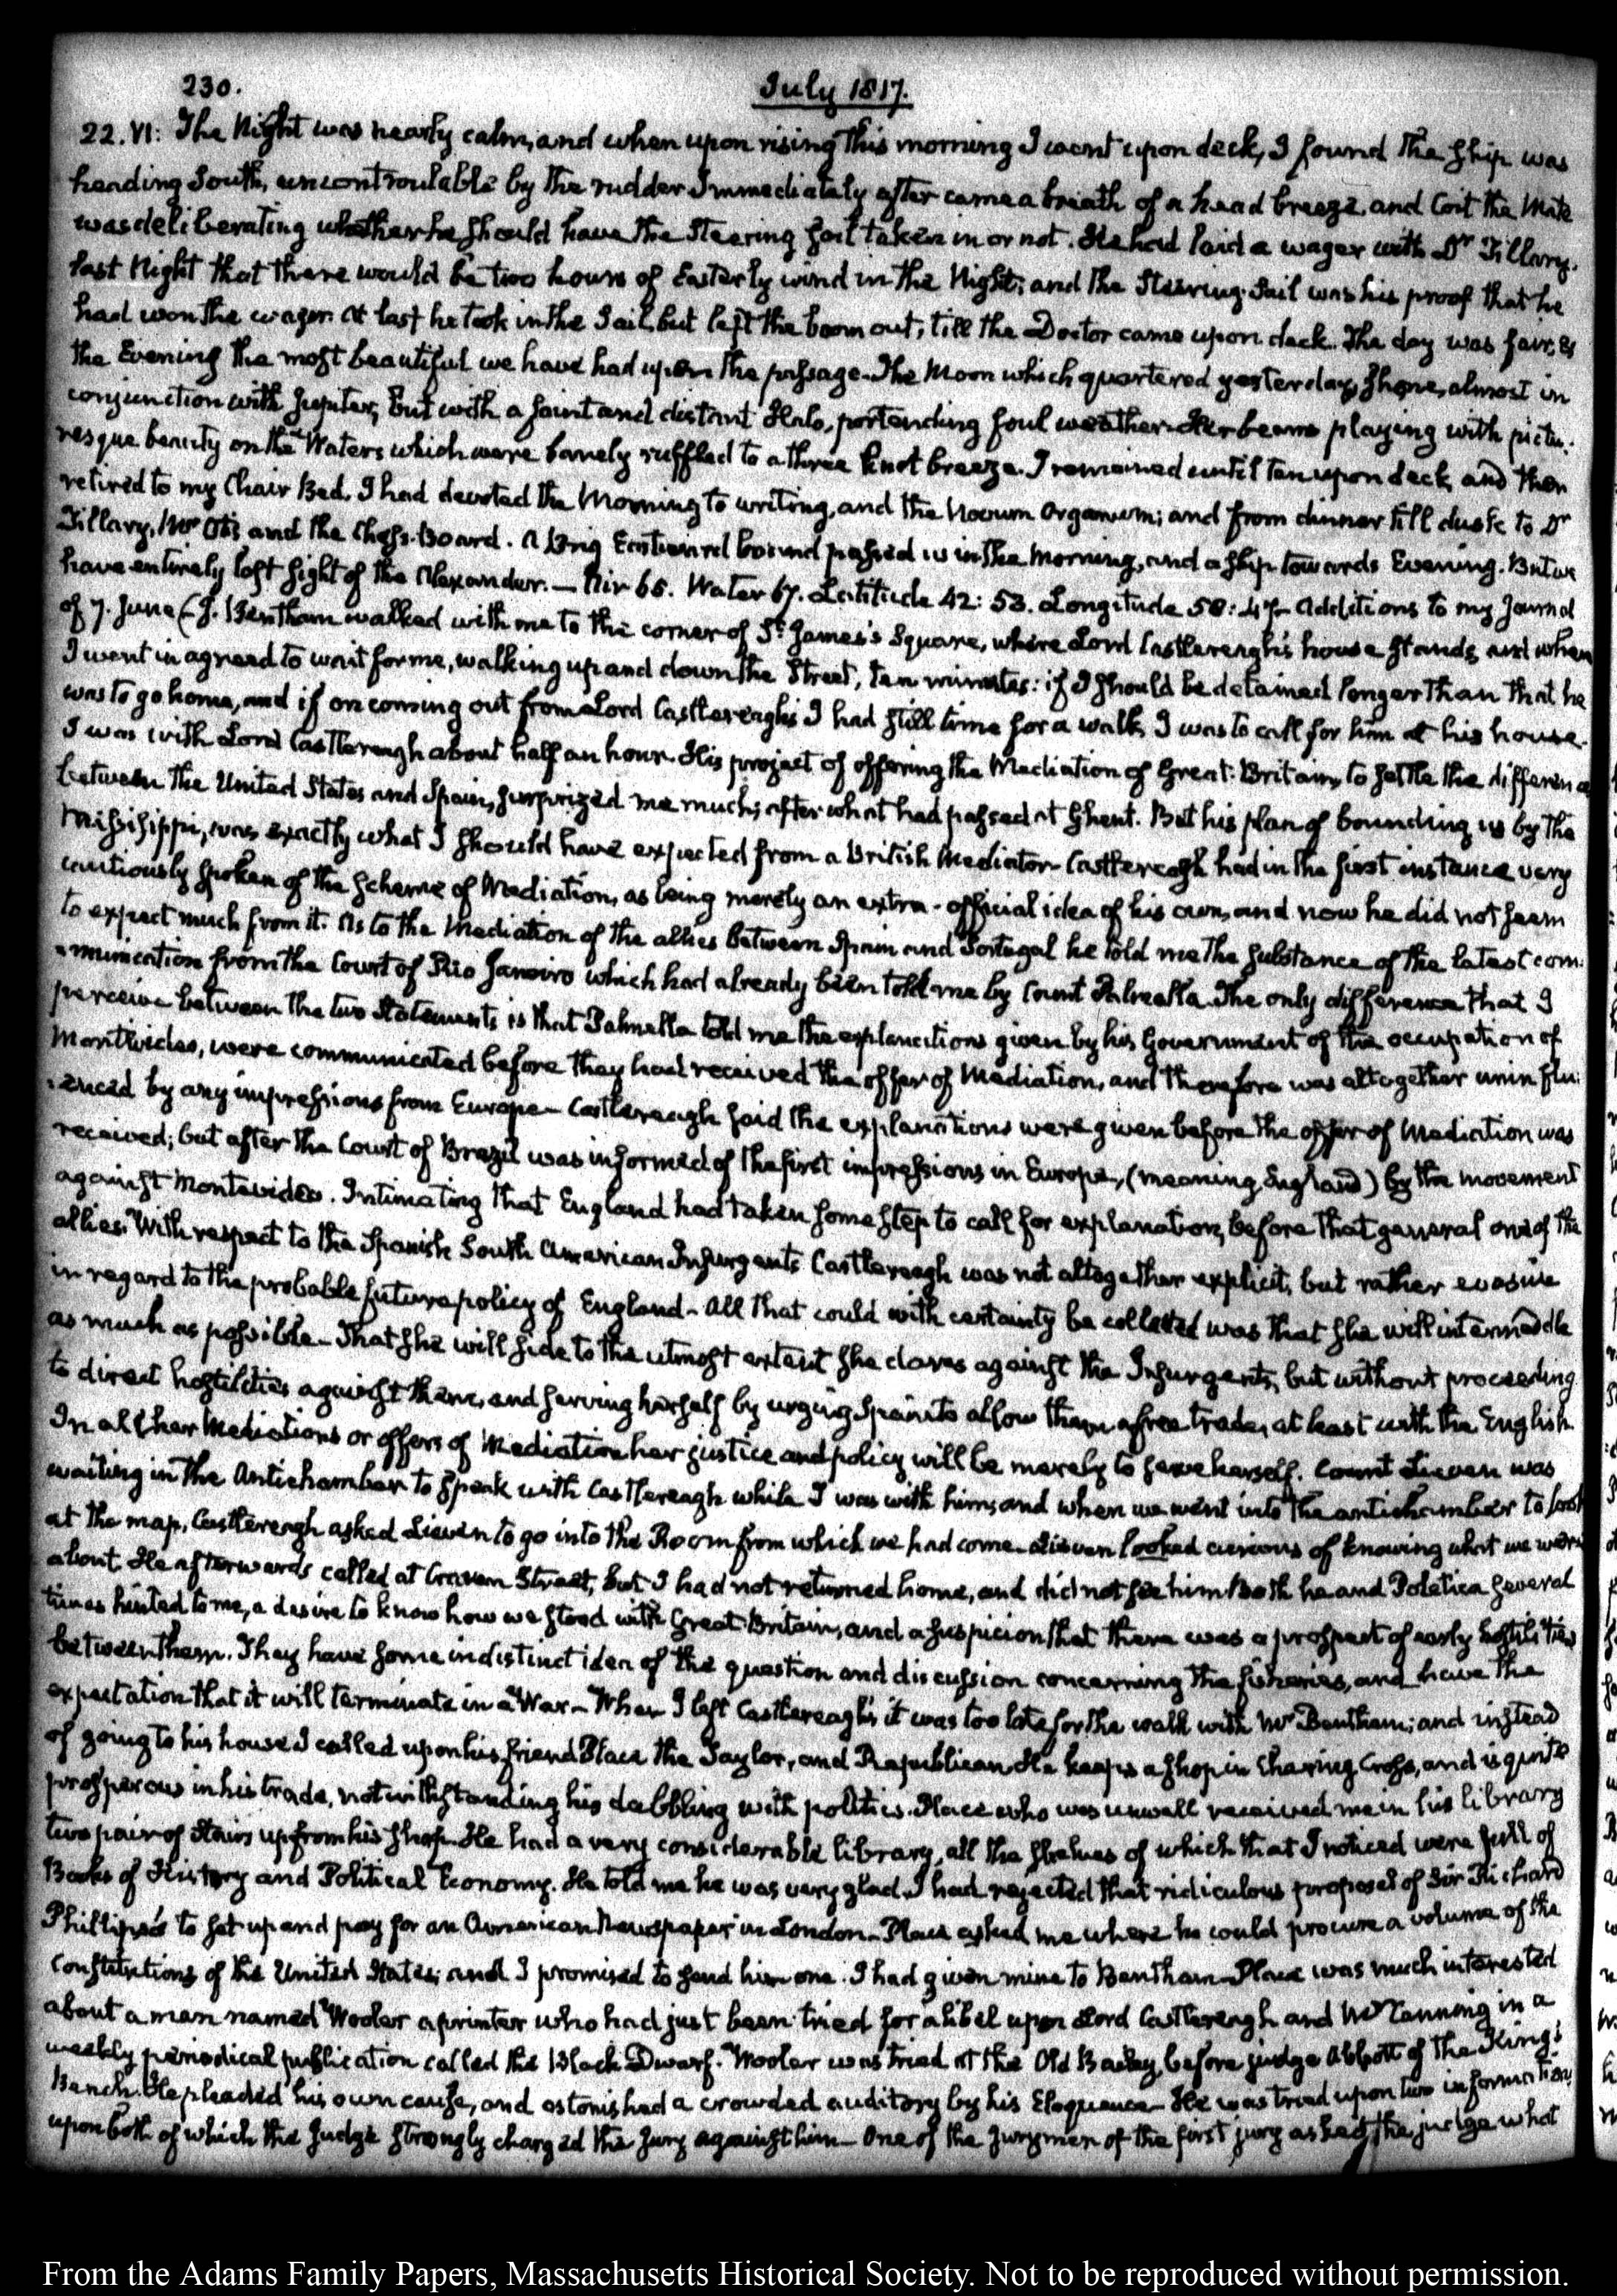 230.
July 1817.
22. VI: The Night was nearly calm, and when upon rising this morning I went upon deck, I found the ship was
heading South, uncontroulable by the rudder. Immediately after came a breath of a head breeze, and Coit the Mate
was deliberating whether he should have the Steering sail taken in or not. He had laid a wager with Dr Tillary.
last Night that there would be two hours of Easterly wind in the Night; and the Steering-Sail was his proof that he
had won the wager. At last he took in the Sail, but left the boom out, till the Doctor came upon deck. The day was fair, &
the Evening the most beautiful we have had upon the passage. The Moon which quartered yesterday, shone, almost in
conjunction with Jupiter, but with a faint and distant Halo, portending foul weather. Her beams playing with pictu-
resque beauty on the Waters which were barely ruffled to a three knot breeze. I remained until ten upon deck, and then
retired to my Chair Bed. I had devoted the Morning to writing, and the Novum Organum; and from dinner till dusk to Dr
Tillary, Mr Otis and the Chess-Board. A Brig Eastward bound passed us in the morning, and a ship towards Evening. But we
have entirely lost sight of the Alexander. — Air 65. Water 67. Latitude 42: 53. Longitude 58: 47. Additions to my Journal
of 7. June (J. Bentham walked with me to the corner of St James's Square, where Lord Castlereagh's house stands, and when
I went in agreed to wait for me, walking up and down the Street, ten minutes: if I should be detained longer than that he
was to go home, and if on coming out from Lord Castlereagh's I had still time for a walk, I was to call for him at his house.
I was with Lord Castlereagh about half an hour. His project of offering the Mediation of Great-Britain, to settle the difference
between the United States and Spain, surprized me much, after what had passed at Ghent. But his plan of bounding us by the
Missisippi, was exactly what I should have expected from a British Mediator. Castlereagh had in the first instance very
cautiously spoken of the scheme of Mediation, as being merely an extra-official idea of his own, and now he did not seem
to expect much from it. As to the Mediation of the allies between Spain and Portugal he told me the substance of the latest com-
munication from the Court of Rio Janeiro which had already been told me by Count Palmella. The only difference that I
perceive between the two statements is that Palmella told me the explanations given by his Government of the occupation of
Montevideo, were communicated before they had received the offer of Mediation, and therefore was altogether uninflu-
enced by any impressions from Europe — Castlereagh said the explanations were given before the offer of Mediation was
received; but after the Court of Brazil was informed of the first impressions in Europe, (meaning England) by the movement
against Montevideo. Intimating that England had taken some step to call for explanation, before that general one of the
allies. With respect to the Spanish South American Insurgents Castlereagh was not altogether explicit, but rather evasive
in regard to the probable future policy of England — All that could with certainty be collected was that she will intermeddle
as much as possible — That she will side to the utmost extent she dares against the Insurgents, but without proceeding
to direct hostilities against them, and serving herself by urging Spain to allow them a free trade, at least with the English.
In all her Mediations or offers of Mediation her justice and policy will be merely to serve herself. Count Lieven was
waiting in the Antichamber to speak with Castlereagh while I was with him; and when we went into the antichamber to look
at the map, Castlereagh asked Lieven to go into the Room from which we had come — Lieven looked curious of knowing what we were
about. He afterwards called at Craven Street, but I had not returned home, and did not see him. Both he and Poletica several
times hinted to me, a desire to know how we stood with Great-Britain, and a suspicion that there was a prospect of early hostilities
between them. They have some indistinct idea of the question and discussion concerning the fisheries, and have the
expectation that it will terminate in a War — When I left Castlereagh's it was too late for the walk with Mr Bentham; and instead
of going to his house I called upon his friend Place the Taylor, and Republican. He keeps a shop in Charing Cross, and is quite
prosperous in his trade, notwithstanding his dabbling with politics. Place who was unwell received me in his library
two pair of stairs up from his shop. He had a very considerable library, all the shelves of which that I noticed were full of
Books of History and Political Economy. He told me he was very glad I had rejected that ridiculous proposal of Sir Richard
Phillips's to set up and pay for an American Newspaper in London — Place asked me where he could procure a volume of the
Constitutions of the United States; and I promised to send him one. I had given mine to Bentham — Place was much interested
about a man named Wooler a printer who had just been tried for a libel upon Lord Castlereagh and Mr Canning in a
weekly periodical publication called the Black Dwarf. Wooler was tried at the Old Bailey before judge Abbott of the King's
Bench. He pleaded his own cause, and astonished a crowded auditory by his Eloquence — He was tried upon two informations
upon both of which the Judge strongly charged the Jury against him — One of the Jurymen of the first jury asked the judge what
From the Adams Family Papers, Massachusetts Historical Society. Not to be reproduced without permission.